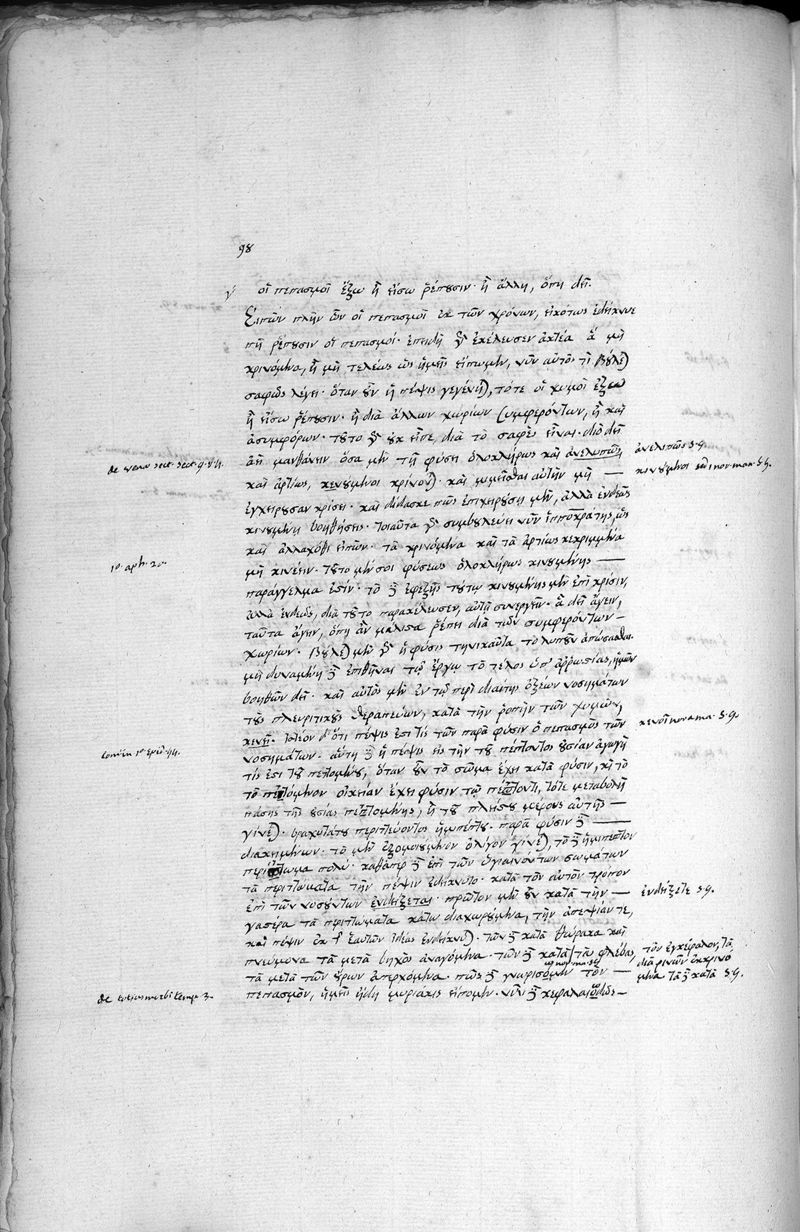 98
γʹ οἱ πεπασμοὶ ἔξω ἢ εἴσω ῥέπουσιν· ἢ ἄλλη, ὅπη δεῖ.
Εἰπὼν πλὴν ὧν οἱ πεπασμοὶ ἐκ τῶν χρόνων, εἰκότως ἐδήλωσε
πῆ ῥέπουσιν οἱ πεπασμοί· ἐπειδὴ γὰρ ἐκέλευσεν ἀκτέα ἃ μὴ
κρινόμενα, ἢ μὴ τελέως ὡς ἡμεῖς εἴπωμεν, νῦν αὐτὸ τί βούλεται
σαφῶς λέγει· ὅταν οὖν ἡ πέψις γεγένηται, τότε οἱ χυμοὶ ἔξω
ἢ εἴσω ῥέπουσιν· ἢ διὰ ἄλλων χωρίων συμφερόντων, ἢ καὶ
ἀσυμφόρων· τοῦτο γὰρ οὐκ εἶπε διὰ τὸ σαφὲς εἶναι· διὸ δεῖ
ἀεὶ μανθάνειν ὅσα μὲν τῇ φύσει ὁλοκλήρως καὶ ἀνελιπῶς
καὶ ἀρτίως, κενούμενοι κρίνονται· καὶ μιμεῖσθαι αὐτὴν μὴ
ἐγχειροῦσαν κρίσει· καὶ διδάσκει πῶς ἐπιχειρούσῃ μὲν, ἀλλὰ ἐνδεῶς
κινουμένῃ βοηθήσεις· τοιαῦτα γὰρ συμβουλεύει νῦν ἱπποκράτης, ὡς
καὶ ἀλλαχόθι εἰπὼν· τὰ κρινόμενα καὶ τὰ ἀρτίως κεκριμένα
μὴ κινέειν· τοῦτο μέν σοι φύσεως ὁλοκλήρως κινουμένης
παράγγελμα ἐστίν· τὸ δὲ ἐφεξῆς τούτῳ κινουμένης μὲν ἐπὶ κρίσιν,
ἀλλὰ ἐνδεῶς, διὰ τοῦτο παρακέλευσεν, αὐτῇ συνεργεῖν· ἃ δεῖ ἄγειν,
ταῦτα ἄγειν, ὅπη ἂν μάλιστα ῥέπει διὰ τῶν συμφερόντων
χωρίων· βούλεται μὲν γὰρ ἡ φύσις τηνικαῦτα τὸ λυποῦν ἀπώσασθαι·
μὴ δυναμένη δὲ ἐπιθεῖναι τῷ ἔργῳ τὸ τέλος ὑπ' ἀῤῥωστίας, ἡμῶν
βοηθῶν δεῖ· καὶ αὐτὸς μὲν ἐν τῷ περὶ διαίτης ὀξέων νοσημάτων
τοὺς πλευριτικοὺς θεραπεύων, κατὰ τὴν ῥοπὴν τῶν χυμῶν,
κινεῖ· ἰστέον δ' ὅτι πέψις ἐστί τις τῶν παρὰ φύσιν ὁ πεπασμὸς τῶν
νοσημάτων· αὕτη δὲ ἡ πέψις εἰς τὴν τοῦ πέπτοντος οὐσίαν ἀγωγή
τίς ἐστι τοῦ πεπτομένου, ὅταν οὖν τὸ σῶμα ἔχει κατὰ φύσιν, καὶ τὸ
τὸ πεπτόμενον οἰκείαν ἔχει φύσιν τῷ πέπτοντι, τότε μεταβολὴ
πάσης τῆς οὐσίας πεπτομένης, ἢ τοῦ πλείστου μέρους αὐτῆς
γίνεται· βραχυτάτου περιττεύοντος ἡμιπέπτου· παρὰ φύσιν δὲ
διακειμένων· τὸ μὲν ἐξομοιούμενον ὀλίγον γίνεται, τὸ δὲ ἡμίπεπτον
περίττωμα πολύ· καθάπερ δὲ ἐπὶ τῶν ὑγιαινόντων σωμάτων
τὰ περιττώματα τὴν πέψιν ἐδήλωτο· κατὰ τὸν αὐτὸν τρόπον
ἐπὶ τῶν νοσούντων ἐνδείξεται· πρῶτον μὲν οὖν κατὰ τὴν
γαστέρα τὰ περιττώματα κάτω διαχωρούμενα, τὴν ἀπεψίαν τε,
καὶ πέψιν ἐκ τῆς ἑαυτῶν ἰδέας ἐνδείκνυται· τῶν δὲ κατὰ θώρακα καὶ
πνεύμονα τὰ μετὰ βηχὸς ἀναγόμενα· τῶν δὲ κατὰ τὰς φλέβας,
τὰ μετὰ τῶν οὔρων ἀπερχόμενα· πῶς δὲ γνωρίσομεν τὸν
πεπασμὸν, ἡμεῖς ἤδη μυριάκις εἴπομεν· νυνὶ δὲ κεφαλαιωδῶς
10 aph. 20.
ἐνδείξεται s.g.
τὸν ἐγκέφαλον, τὰ
διὰ ῥινῶν ἐκκρινό
μενα τὰ δὲ κατὰ s.g.